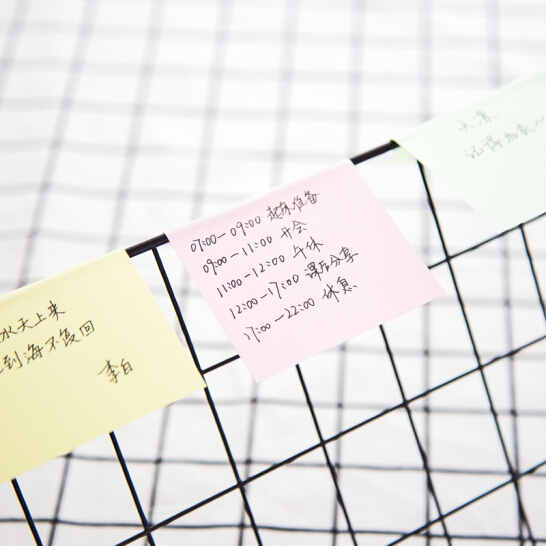 水天上来
到海不复回
李白
07:00—09:00 起床准备
09:00—11:00 开会
11:00—12:00 午休
12:00—17:00 课后分享
17:00—22:00 休息
记得加衣